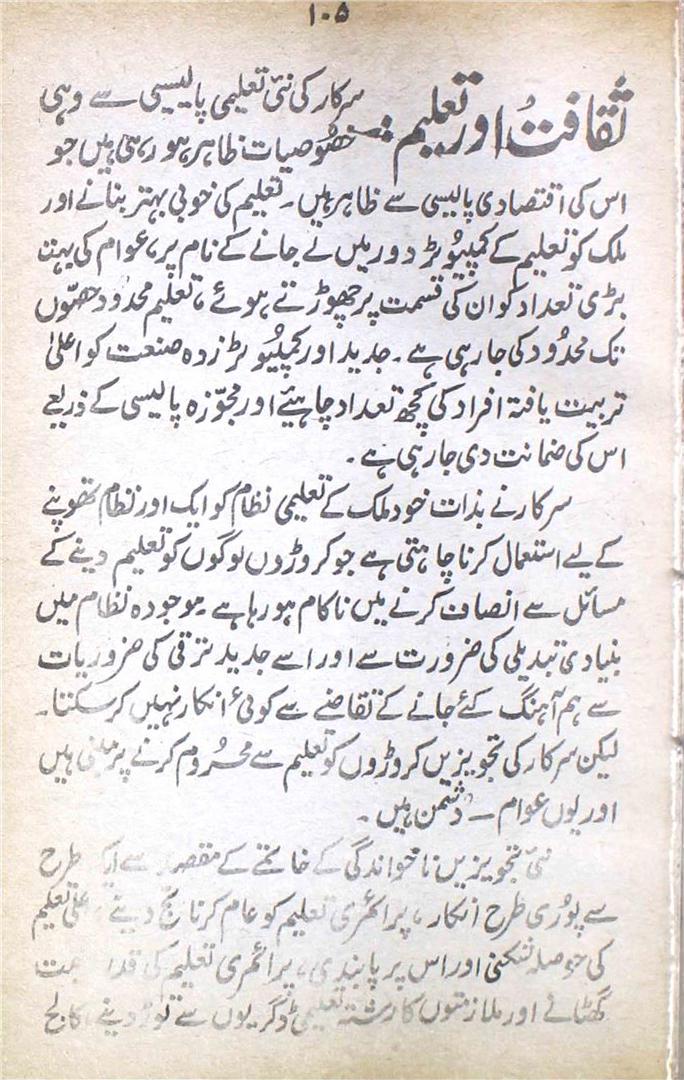 ۱۰۵
ثقافت اور تعلیم :- سرکار کی نئی تعلیمی پالیسی سے وہی
خصُوصیات ظاہر ہو رہی ہیں جو
اس کی اقتصادی پالیسی سے ظاہر ہیں۔ تعلیم کی خوبی بہتر بنانے اور
ملک کو تعلیم کے کمپیوُٹر دور میں لے جانے کے نام پر، عوام کی بہت
بڑی تعداد کو ان کی قسمت پر چھوڑتے ہوئے، تعلیم محدُود حصّوں
تک محدُود کی جا رہی ہے۔ جدید اور کمپیُوٹر زدہ صنعت کو اعلیٰ
تربیت یافتہ افراد کی کچھ تعداد چاہیئے اور مجوّزہ پالیسی کے ذریعے
اس کی ضمانت دی جا رہی ہے۔
سرکار نے بذات خود ملک کے تعلیمی نظام کو ایک اور نظام تھوپنے
کے لیے استعمال کرنا چاہتی ہے جو کروڑوں لوگوں کو تعلیم دینے کے
مسائل سے انصاف کرنے میں ناکام ہو رہا ہے۔ موجودہ نظام میں
بنیادی تبدیلی کی ضرورت سے اور اسے جدید ترقی کی ضروریات
سے ہم آہنگ کئے جانے کے تقاضے سے کوئی انکار نہیں کر سکتا۔
لیکن سرکار کی تجویزیں کروڑوں کو تعلیم سے محرُوم کرنے پر مبنی ہیں
اور یوں عوام — دُشمن ہیں۔
نئی تجویزیں ناخواندگی کے خاتمے کے مقصد سے ایک طرح
سے پوُری طرح انکار، پرائمری تعلیم کو عام کرنا تج دینے، اعلیٰ تعلیم
کی حوصلہ شکنی اور اس پر پابندی، پرائمری تعلیم کی قدر
گھٹانے اور ملازمتوں کا رشتہ تعلیمی ڈگریوں سے توڑ دینے، کالج